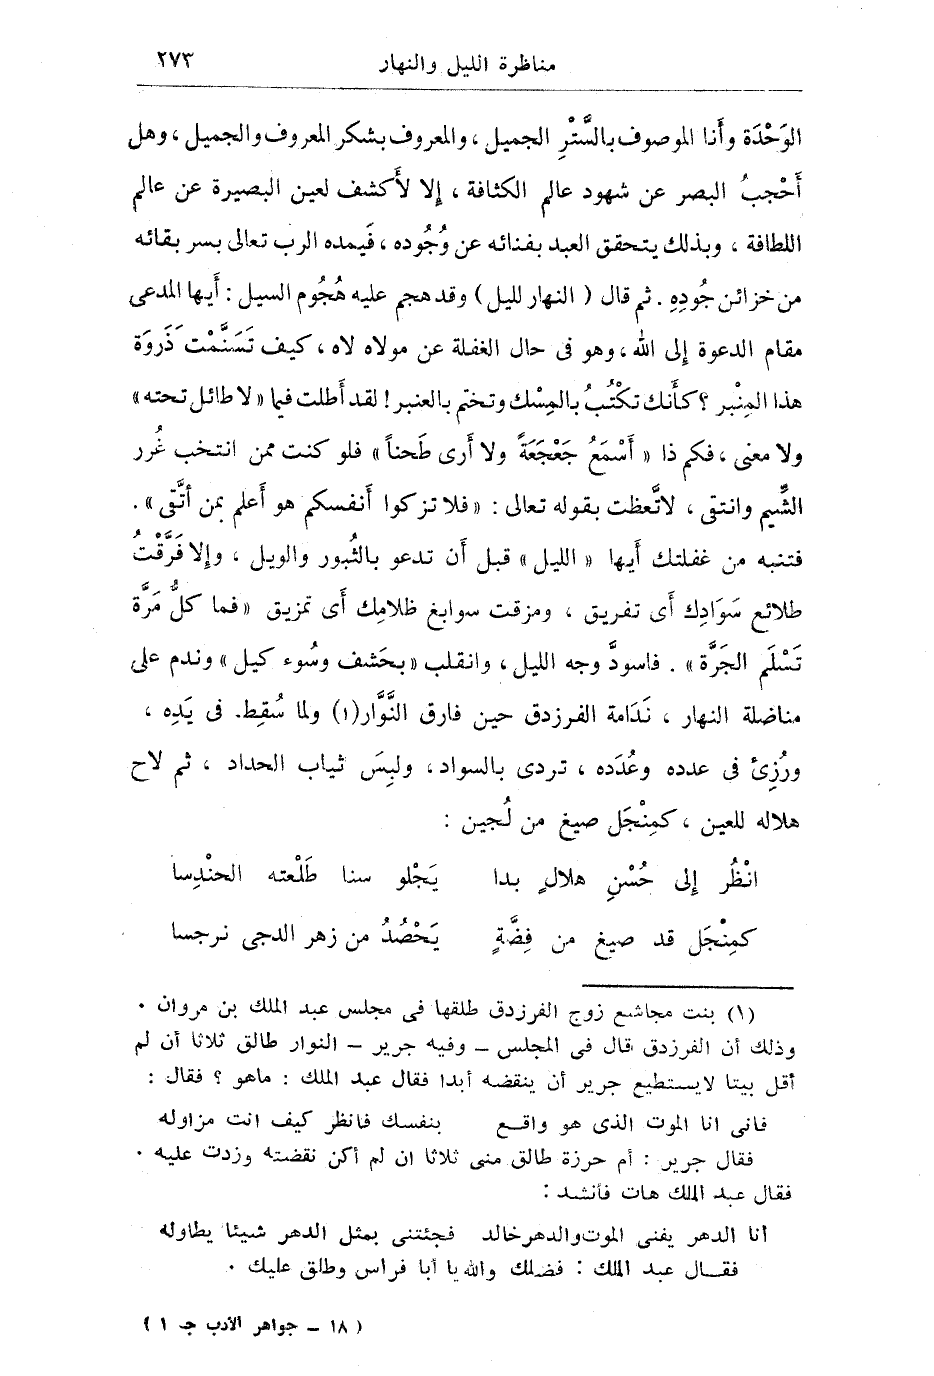 مناظرة الليل والنهار ٢٧٣
الوَحْدَة وأَنا الموصوف بالسَّتْرِ الجميل ، والمعروف بشكر المعروف والجميل ، وهل
أَحْجبُ البصر عن شهود عالم الكثافة ، إلا لأَكشف لعين البصيرة عن عالم
اللطافة ، وبذلك يتحقق العبد بفنائه عن وُجُوده ، فَيمده الرب تعالى بسر بقائه
من خزائن جُودِهِ . ثم قال ( النهار لليل ) وقد هجم عليه هُجُوم السيل : أَيها المدعى
مقام الدعوة إلى الله ، وهو فى حال الغفلة عن مولاه لاه ، كيف تَسَنَّمْتَ ذَروَة
هذا المِنْبر ؟ كأَنك تكْتُبُ بالمِسْك وتختم بالعنبر ! لقد أَطلت فيما « لا طائل تحته »
ولا معنى ، فكم ذا « أَسْمَعُ جَعْجَعَةً ولا أَرى طَحناً » فلو كنت ممن انتخب غُرر
الشِّيم وانتقى ، لاتَّعظت بقوله تعالى : « فلا تزكوا أَنفسكم هو أَعلم بمن أتَّقى » .
فتنبه من غفلتك أَيها « الليل » قبل أَن تدعو بالثُبور والويل ، وإلا فَرَّقْتُ
طلائع سَوَادِك أَى تفريق ، ومزقت سوابغ ظلامِك أَى تمزيق « فما كلُّ مَرَّة
تَسْلَم الجَرَّة » . فاسودَّ وجه الليل ، وانقلب « بحَشف وسُوء كيل » وندم على
مناضلة النهار ، نَدَامة الفرزدق حين فارق النَّوَّار(١) ولما سُقِط. فى يَدِه ،
ورُزِئَ فى عدده وعُدَده ، تردى بالسواد ، ولبِسَ ثياب الحداد ، ثم لاح
هلاله للعين ، كمِنْجَل صيغ من لُجين :
انْظُر إلى حُسْنِ هلالٍ بدا يَجْلو سنا طَلْعته الحنْدِسا
كمِنْجَل قد صيغ من فِضَّةٍ يَحْصُدُ من زهر الدجى نرجسا
(١) بنت مجاشع زوج الفرزدق طلقها فى مجلس عبد الملك بن مروان .
وذلك أن الفرزدق قال فى المجلس – وفيه جرير – النوار طالق ثلاثا أن لم
أقل بيتا لايستطيع جرير أن ينقضه أبدا فقال عبد الملك : ماهو ؟ فقال :
فانى انا الموت الذى هو واقع بنفسك فانظر كيف انت مزاوله
فقال جرير : أم حرزة طالق منى ثلاثا ان لم أكن نقضته وزدت عليه .
فقال عبد الملك هات فأنشد :
أنا الدهر يفنى الموت والدهر خالد فجئتنى بمثل الدهر شيئا يطاوله
فقال عبد الملك : فضلك والله يا أبا فراس وطلق عليك .
( ١٨ – جواهر الأدب جـ ١ )